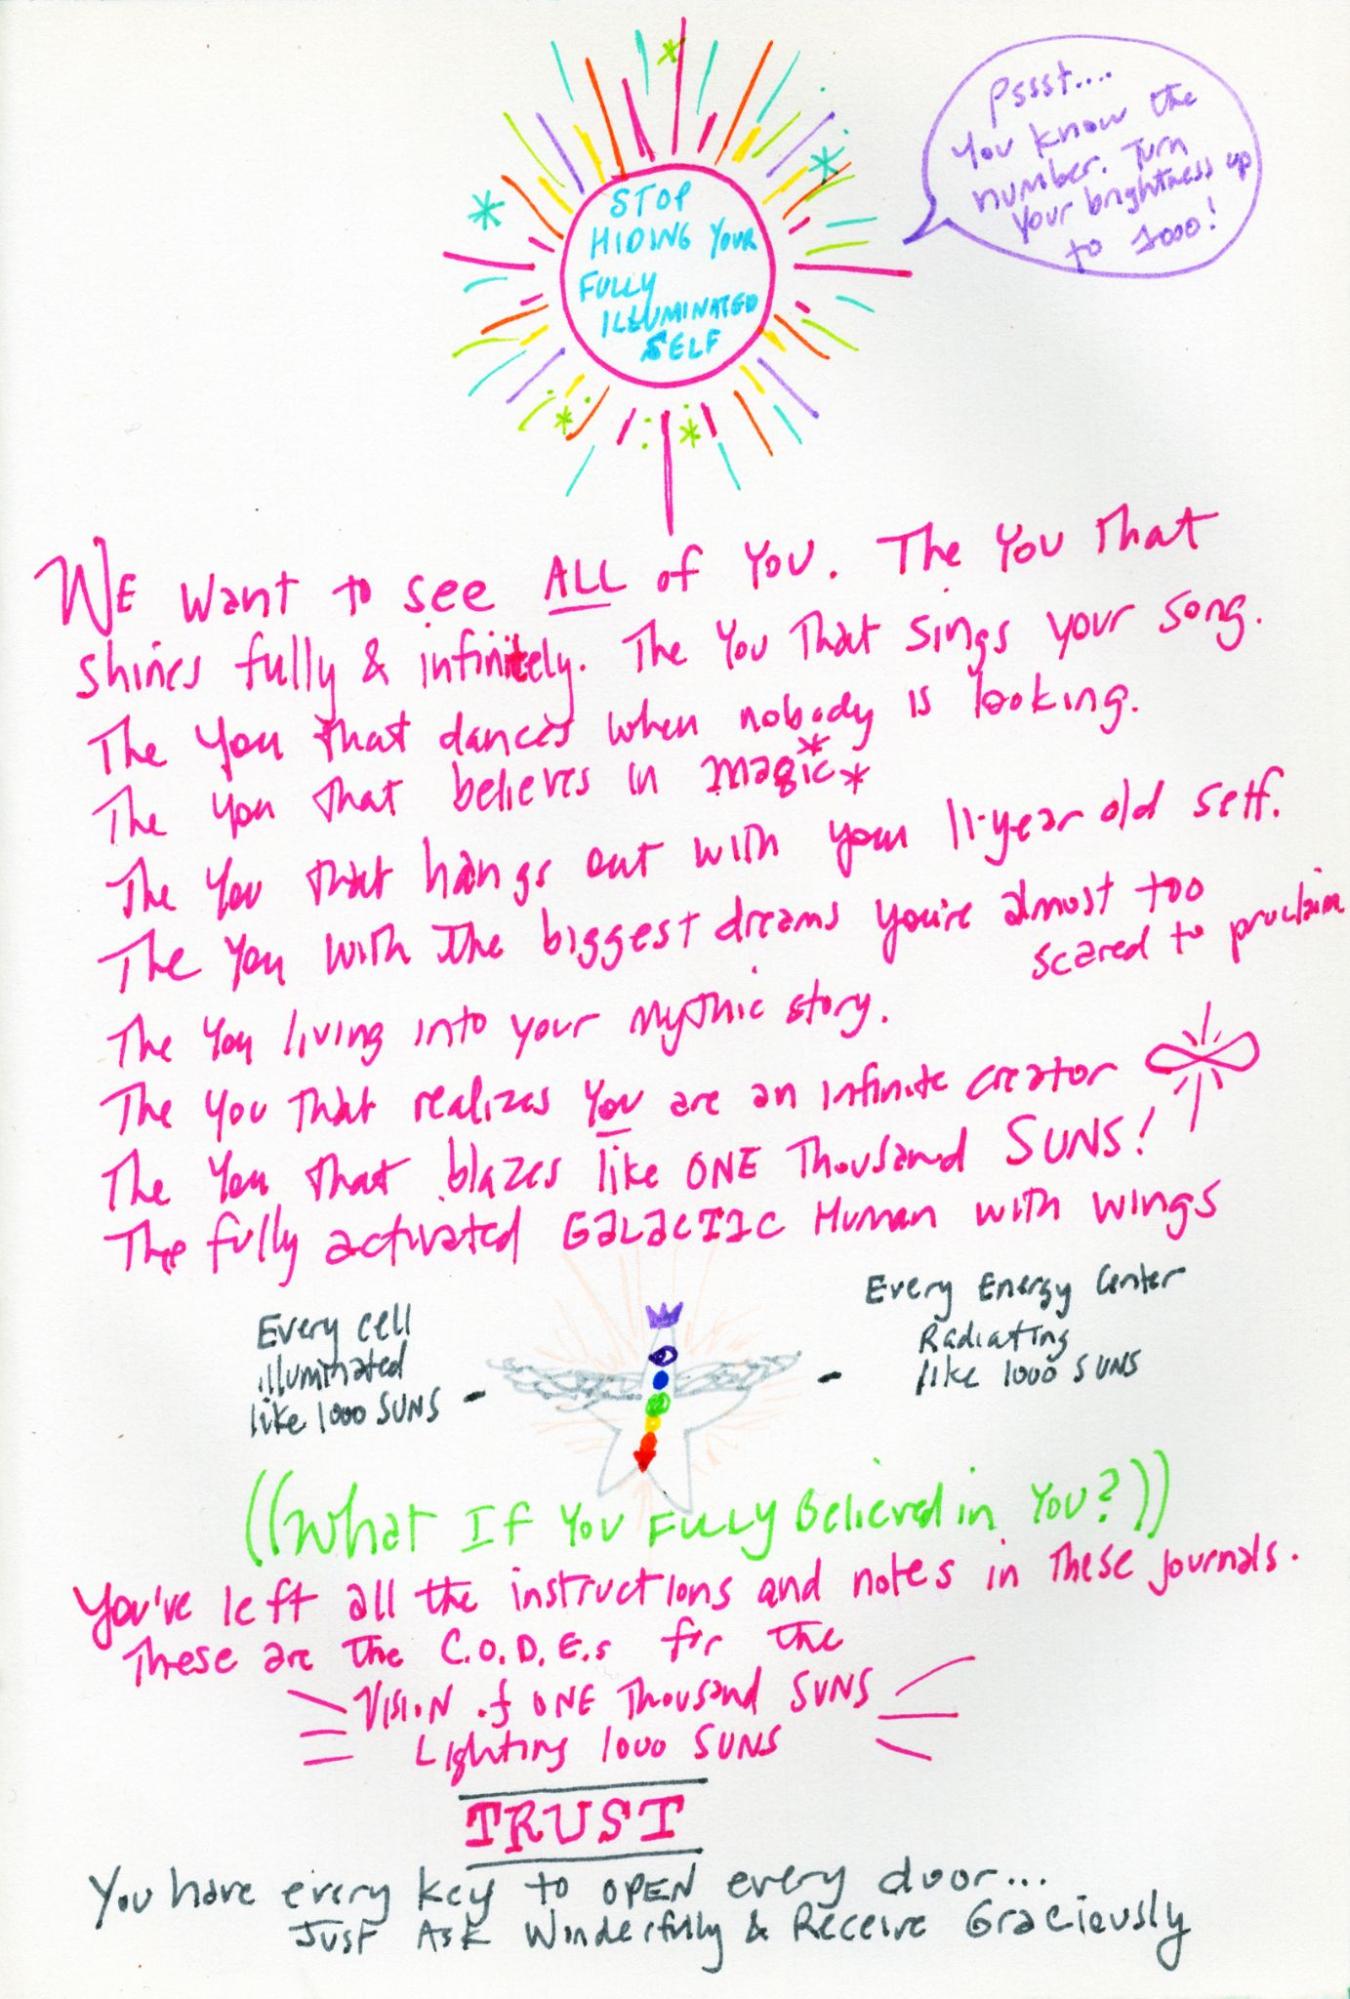 STOP
HIDING YOUR
FULLY
ILLUMINATED
SELF
Pssst....
You know the
number. Turn
Your brightness up
to 1000!
WE want to see ALL of You. The You That
shines fully & infinitely. The You That sings your song.
The You that dances when nobody is looking.
The You that believes in magic**
The You that hangs out with your 11-year old self.
The You with The biggest dreams you're almost too
scared to proclaim
The You living into your mythic story.
The You That realizes You are an infinite creator
The You that blazes like ONE Thousand SUNS!
The fully activated GALACTIC Human with wings
Every cell
illuminated
like 1000 SUNS -
- Every Energy Center
Radiating
like 1000 SUNS
((What If You FULLY Believed in You?))
You've left all the instructions and notes in These journals.
These are The C.O.D.E.s for the
Vision of ONE Thousand SUNS
Lighting 1000 SUNS
TRUST
You have every key to OPEN every door...
Just Ask Wonderfully & Receive Graciously